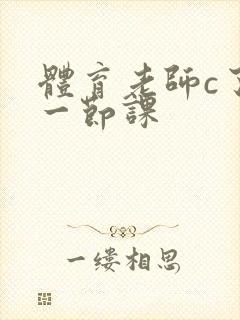 體育老師c了
一節課
一缕相思